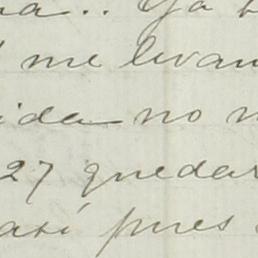 Ya
me levan
ida no
27 quedar
así pues